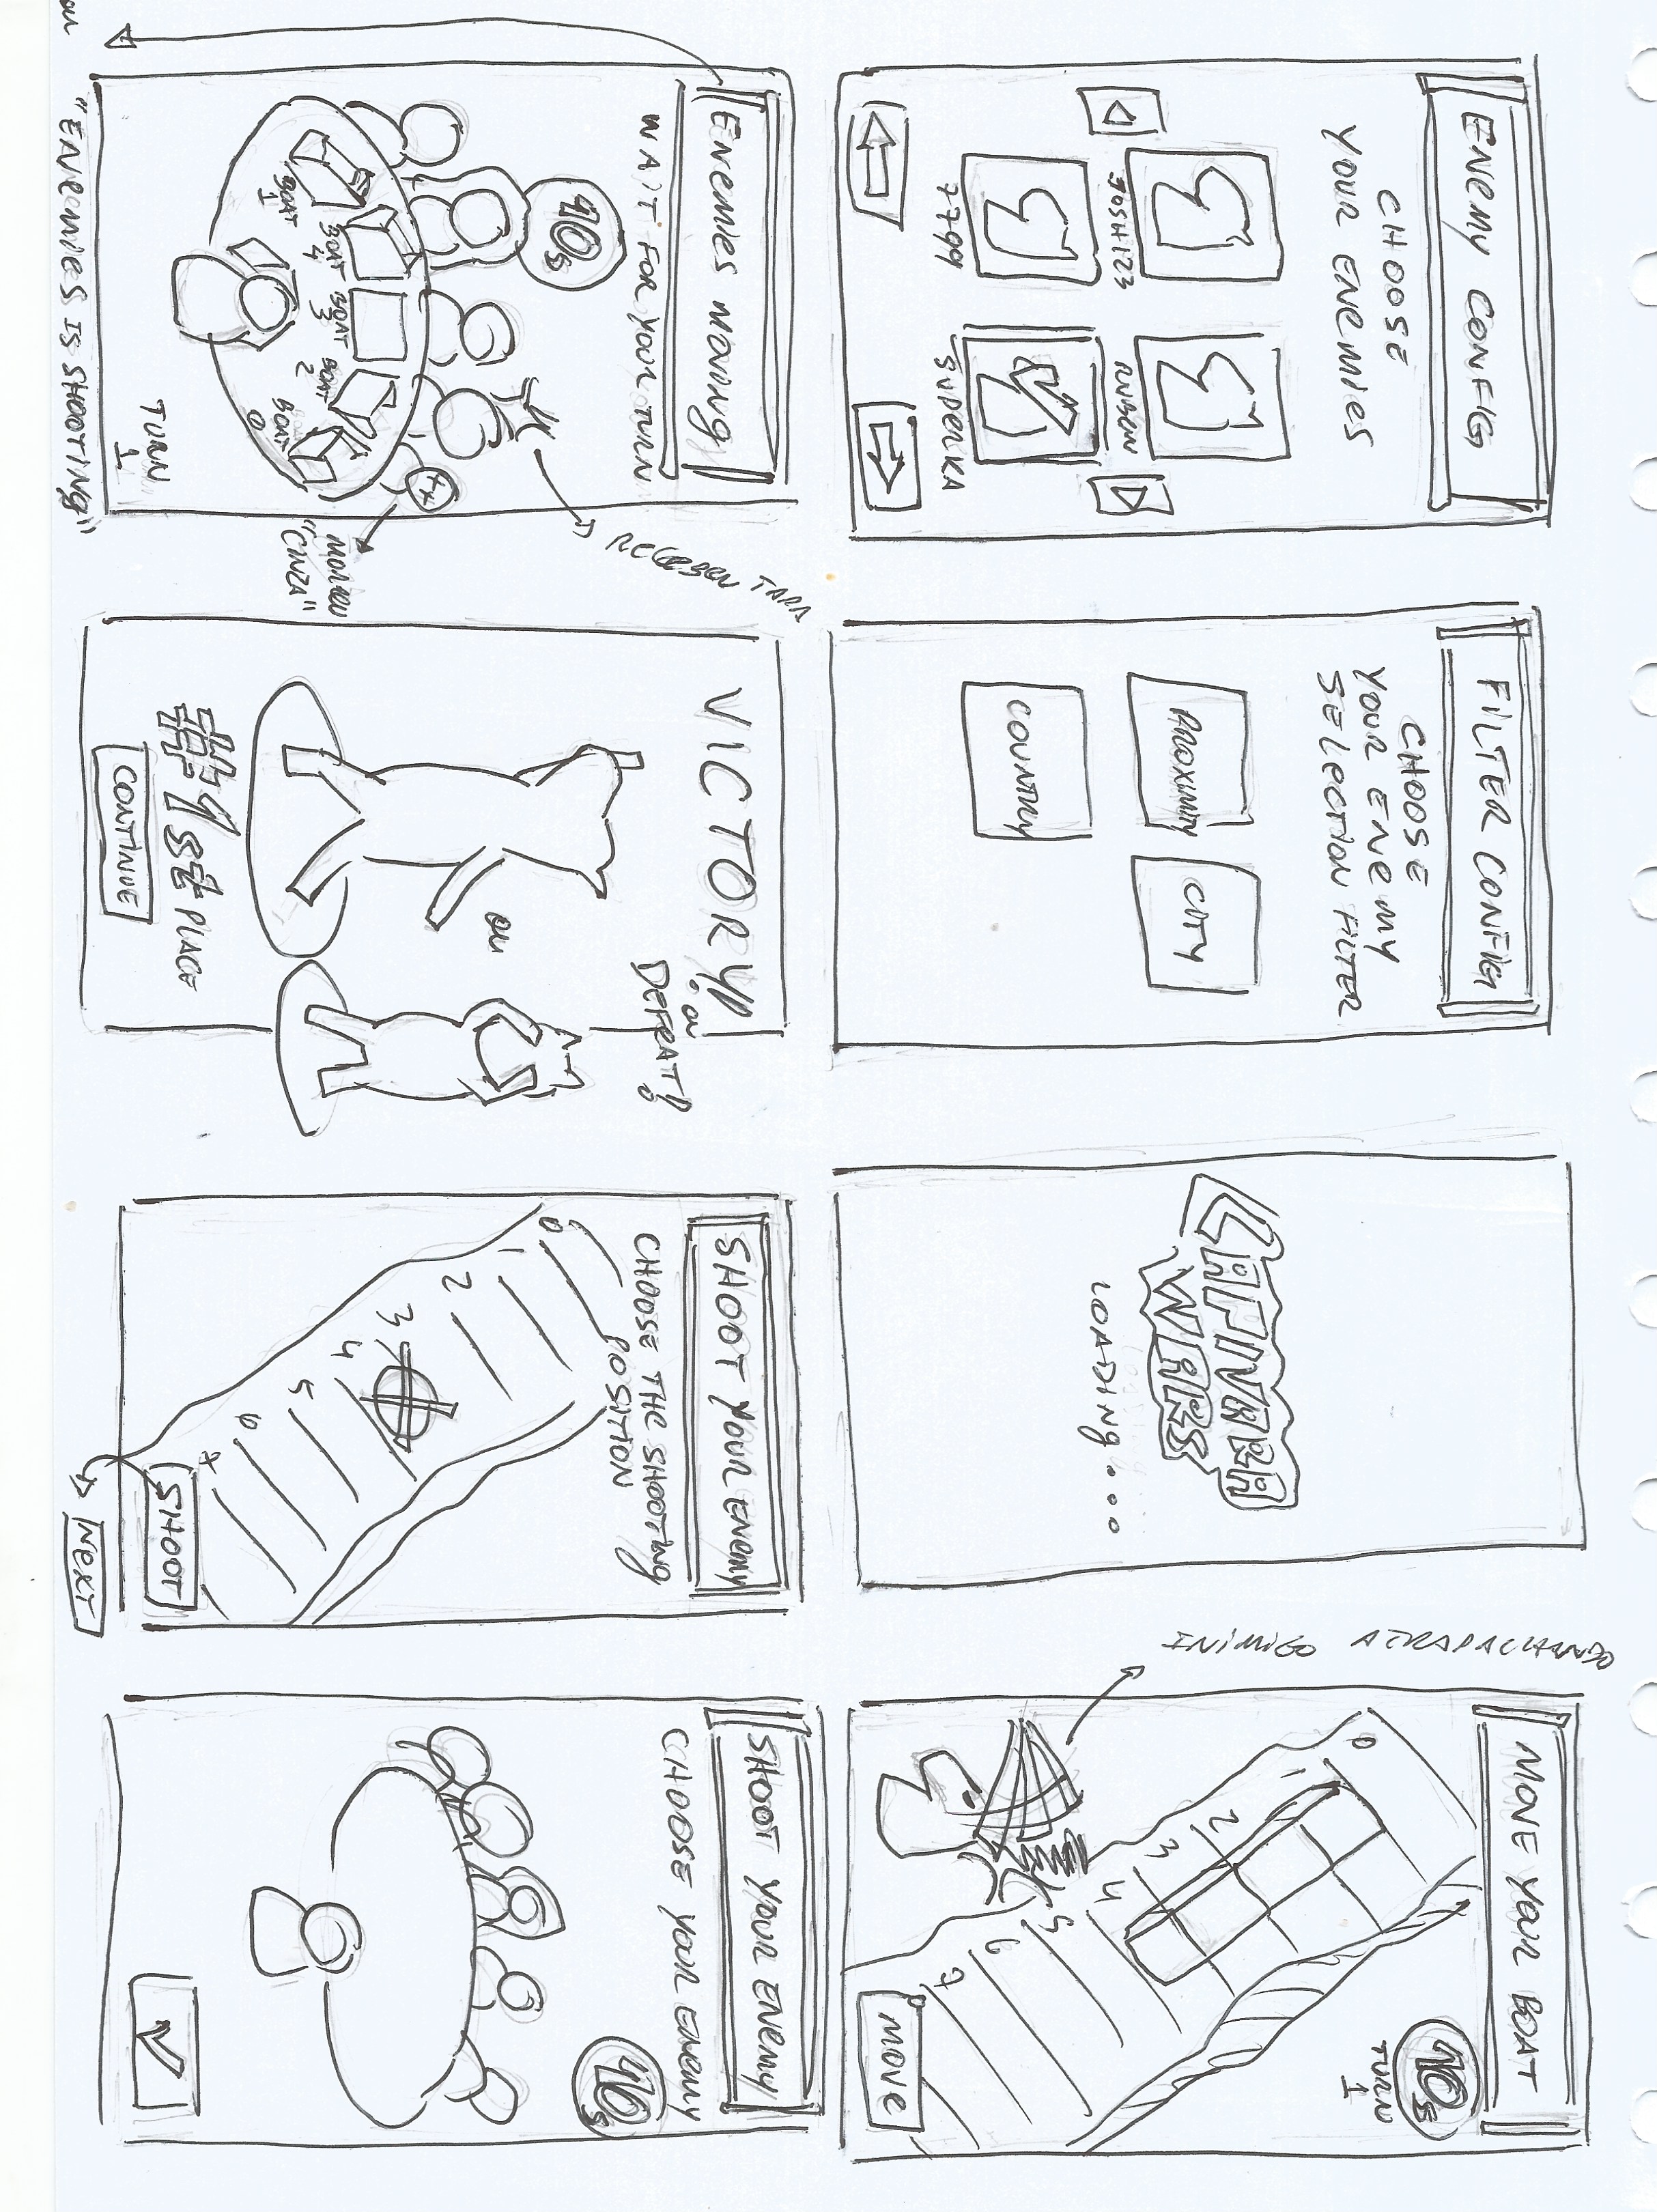 ENEMY CONFIG
CHOOSE
YOUR ENEMIES
JOSH123
RUBEN
7799
SUPERKA
FILTER CONFIG
CHOOSE
YOUR ENEMY
SELECTION FILTER
PROXIMITY
CITY
COUNTRY
CAPIVARA
WARS
LOADING...
INIMIGO ATRAPALHANDO
MOVE YOUR BOAT
10s
TURN
1
0
1
2
3
4
5
6
7
MOVE
ENEMIES MOVING
WAIT FOR YOUR TURN
10s
RECEBEU TAPA
BOAT
1
BOAT
4
BOAT
3
BOAT
2
BOAT
0
MORREU
"CINZA"
TURN
1
ou "ENEMIES IS SHOOTING"
VICTORY!
ou
DEFEAT!
ou
#1st PLACE
CONTINUE
SHOOT YOUR ENEMY
CHOOSE THE SHOOTING
POSITION
0
1
2
3
4
5
6
7
SHOOT
NEXT
SHOOT YOUR ENEMY
CHOOSE YOUR ENEMY
10s